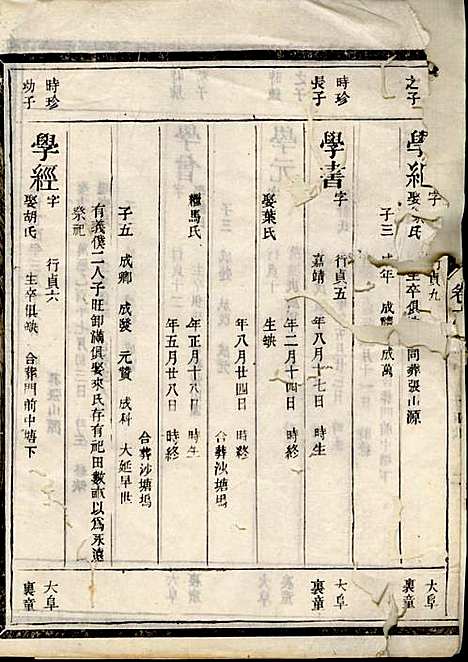 之子
學紀
字
行貞九
娶
氏
生卒俱缺
同葬張山源
子三
成年 成禮 成萬
大阜
裏童
時珍
長子
學書
字
行貞五
嘉靖
年八月十七日 時生
年二月十四日 時終
娶葉氏
生缺
年八月廿四日 時終
合葬沙塘塢
繼馬氏
年正月十八日 時生
年五月廿八日 時終
合葬沙塘塢
子五 成卿 成爱 元贊 成科 大延早世
有義僕二人子旺卸滿俱娶來氏存有祀田數畝以為永遠
祭祀
大阜
裏童
時珍
幼子
學經
字
行貞六
娶胡氏
生卒俱缺 合葬門前中塘下
大阜
裏童